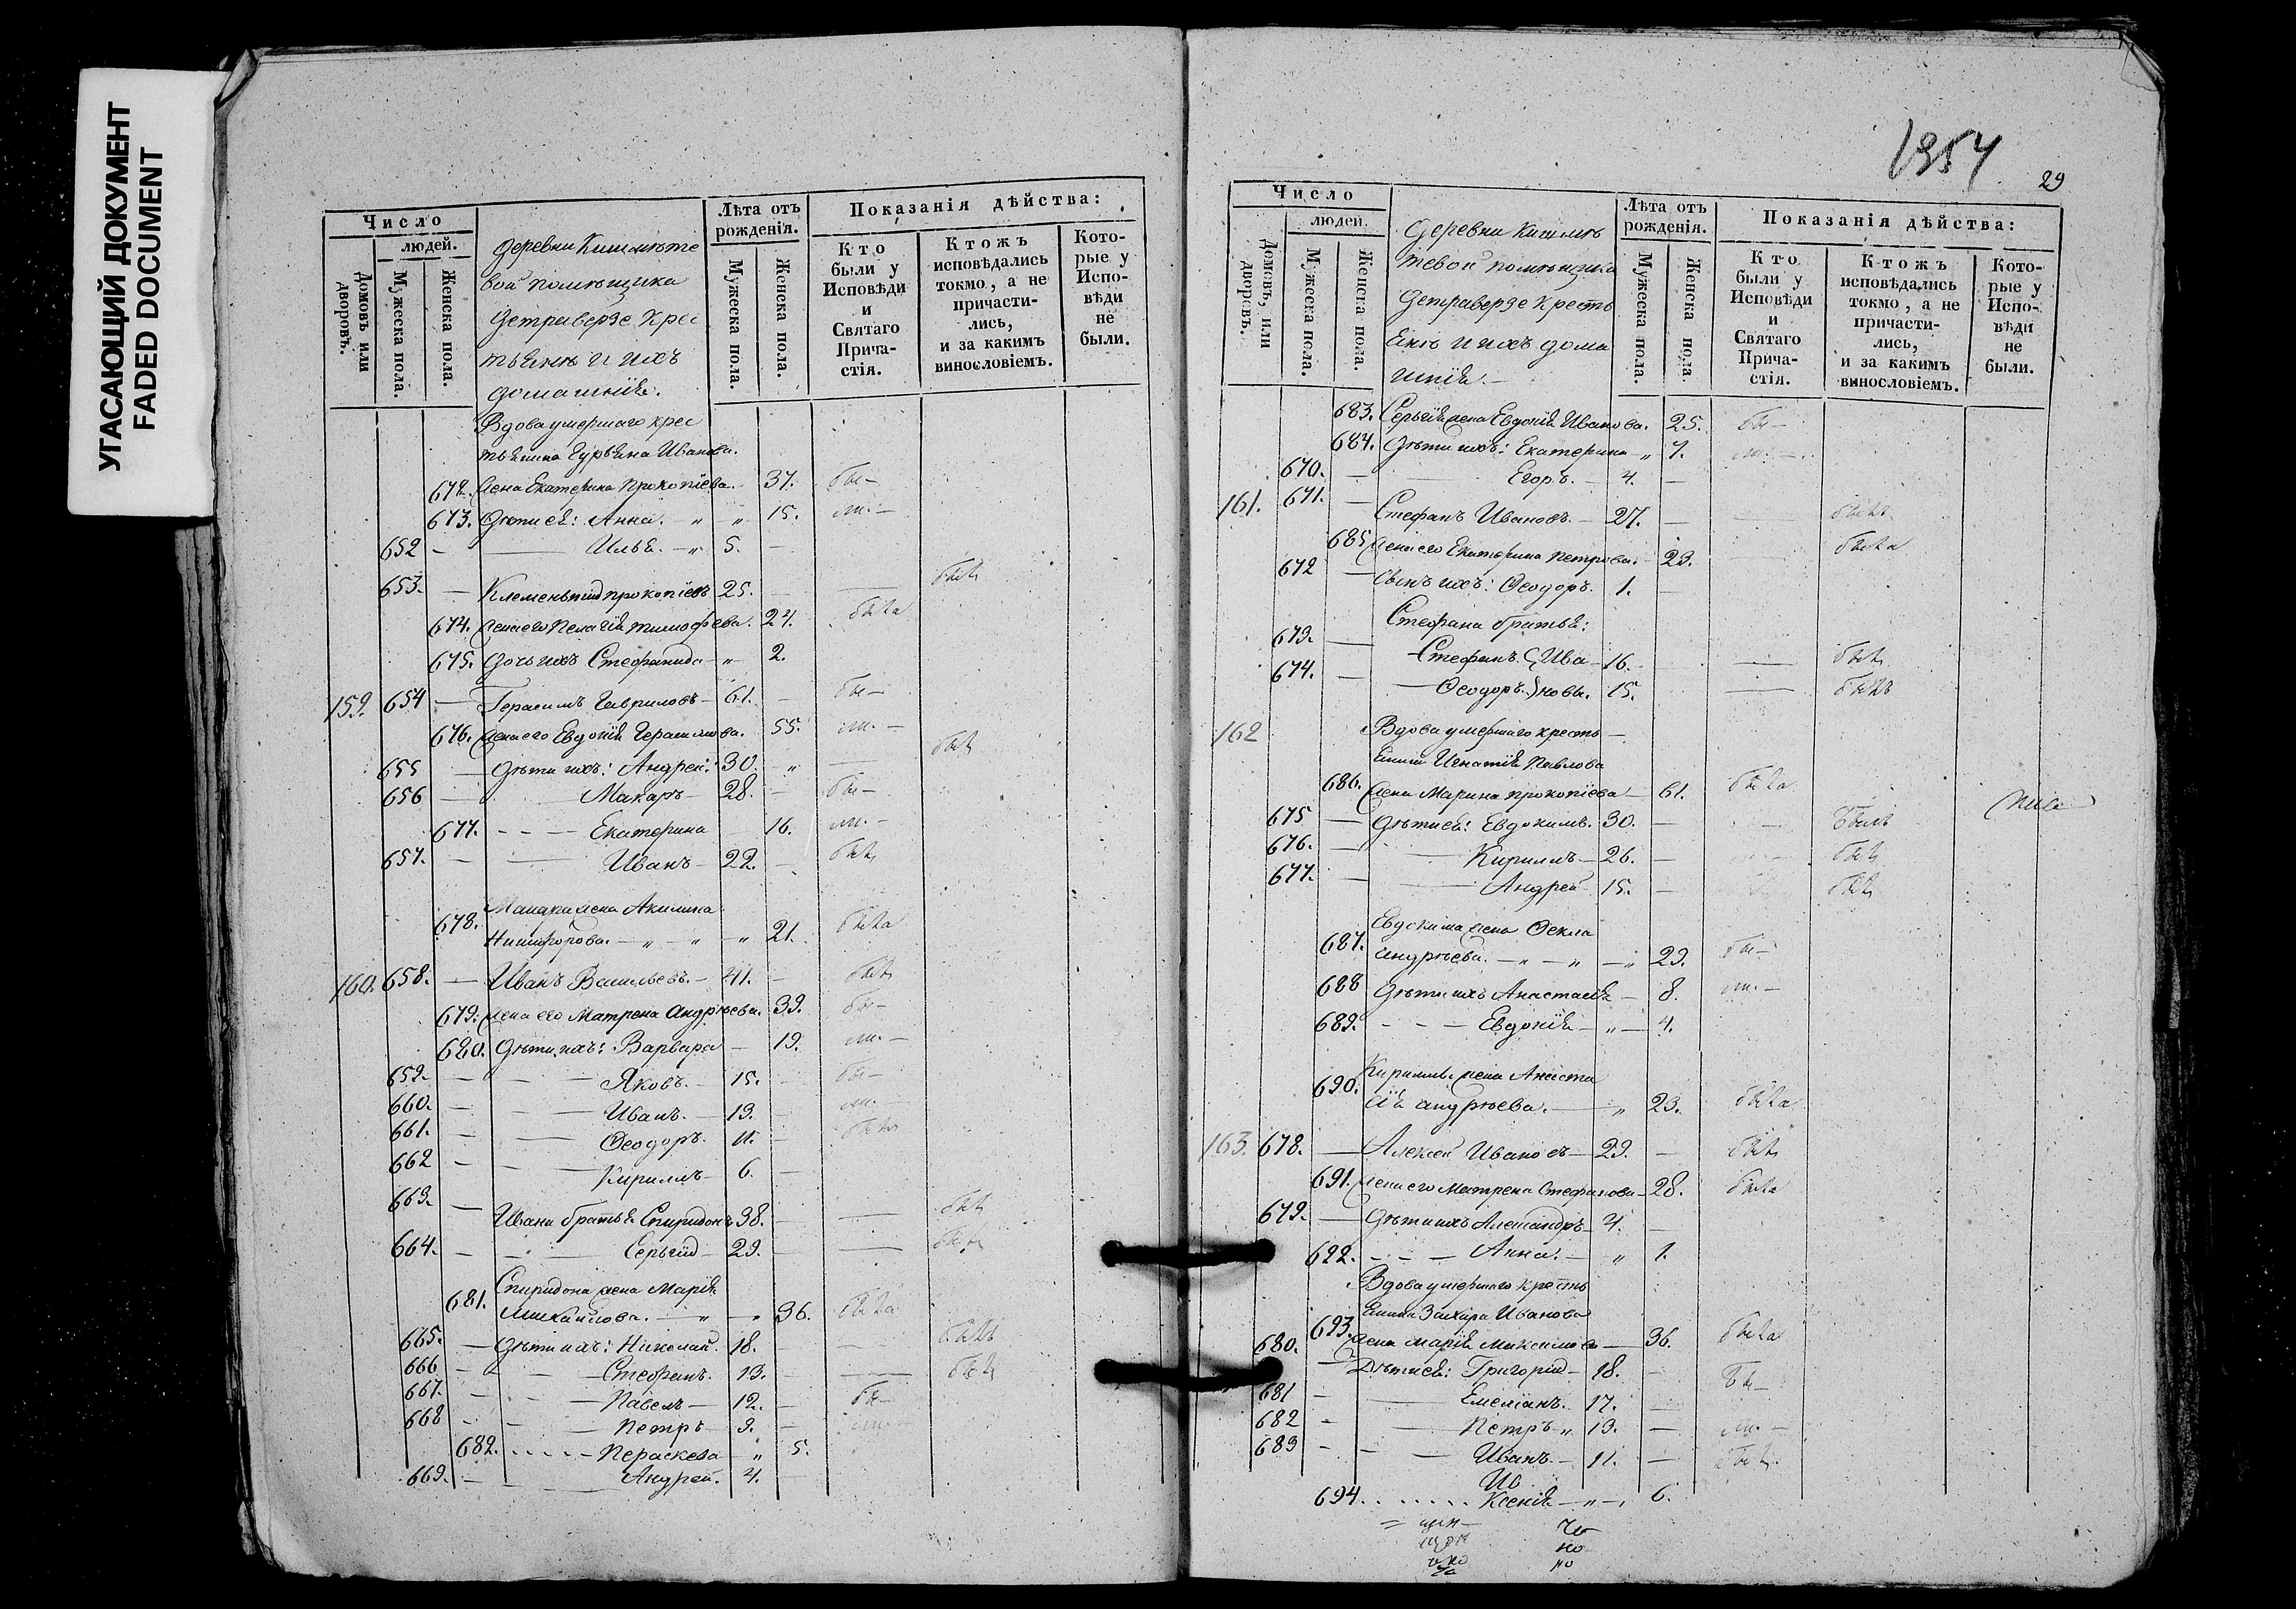 УГАСАЮЩИЙ ДОКУМЕНТ
FADED DOCUMENT
Число
людей.
Домовъ или дворовъ.
Мужеска пола.
Женска пола.
деревни
вой помѣщика
Детраверзе крес
тьянъ и ихъ
домашнія.
Лѣта отъ рожденія.
Мужеска пола.
Женска пола.
Показанія дѣйства:
Кто были у Исповѣди и Святаго Прича-стія.
Ктожъ исповѣдались токмо, а не причасти-лись, и за какимъ винословіемъ.
Кото-рые у Испо-вѣди не были.
Вдова умершаго крес
тьянина Гурьяна Иванова.
672. жена Екатерина Прокопіева. 37. бы-
673. Дѣти ея: Анна. - " - " 15. ли. -
652 - Илья. - " 5. -
653. - Клементій Прокопіевъ 25. - былъ
674. жена его Пелагія Тимофѣева. 24. была
675. дочь ихъ Стефанида - " 2.
159. 654 - Герасимъ Гавриловъ - 61. - бы -
676. жена его Евдокія Герасимова. 55. ли. -
655 - Дѣти ихъ: Андрей. 30. - " былъ
656 - Макаръ - 28. - бы -
677. - - - Екатерина 16. ли. -
657. - Иванъ - 22. - былъ
Макара жена Акилина
678. Никифорова. - " - " - " 21. была
160. 658. - Иванъ Васильевъ. - 41. - былъ
679. жена его Матрена Андрѣева. 39. бы -
680. Дѣти ихъ: Варвара - 19. ли. -
659. - Яковъ. - 15. - бы -
660. - Иванъ. - 13. - ли. -
661. - Ѳеодоръ. 11. - былъ
662 - Кириллъ - 6. -
663. - Ивана братья Спиридонъ 38. - былъ
664. - Сергій - 29. - былъ
Спиридона жена Марія
681. Михайлова. - " - " 36. была
665. - Дѣти ихъ: Николай. 18. - былъ
666 - Стефанъ. 13. - былъ
667. - Павелъ - 12. - бы -
668 - Петръ - 9. - ли
682. - Параскева - " 5.
669. - Андрей. 4.
1954
29
Число
людей.
Домовъ, или дворовъ.
Мужеска пола.
Женска пола.
Деревни
тевой помѣщика
Детраверзе кресть
янъ и ихъ дома
шнія. -
Лѣта отъ рожденія.
Мужеска пола.
Женска пола
Показанія дѣйства:
Кто были у Исповѣди и Святаго Прича-стія.
Ктожъ исповѣдались токмо, а не причасти-лись, и за какимъ винословіемъ.
Кото-рые у Испо-вѣди не были.
683. Сергія жена Евдокія Иванова. 25. бы -
684. Дѣти ихъ: Екатерина " 7. ли. -
670. - Егоръ. - 4. -
161. 671. - Стефанъ Ивановъ. - 27. - былъ
685. жена его Екатерина Петрова. - 23. была
672 - Сынъ ихъ: Ѳеодоръ. 1. -
Стефана братья:
673. - Стефанъ. } Ива - 16. былъ
674. - Ѳеодоръ. } новы. 15. былъ
162 Вдова умершаго кресть -
янина Игнатія Павлова
686. жена Марина Прокопіева - 61. была
675 - Дѣти ея: Евдокимъ. 30. - былъ
676. - Кириллъ - 26. - былъ
677. - Андрей 15. - былъ
Евдокима жена Ѳекла
687. Андрѣева. - " - " - " 29. бы -
688 Дѣти ихъ Анастасія - 8. ли. -
689. - - - Евдокія - " - 4.
Кирилла жена Анаста
690. сія Андрѣева. - " 23. была
163. 678. - Алексей Ивановъ - 29. - былъ
691. жена его Матрена Стефанова - 28. была
679. - Дѣти ихъ Александръ - 4. -
692. - - - Анна. - " 1.
Вдова умершаго кресть
янина Захара Иванова
693. жена Марія Максимова - 36. была
680. - Дѣти ея: Григорій - 18. - бы -
681 - Емеліанъ. 17. -
682 - Петръ " 13. - ли. -
683 - Иванъ. - 11. - былъ
Ив
694. Ксенія - " - 6.